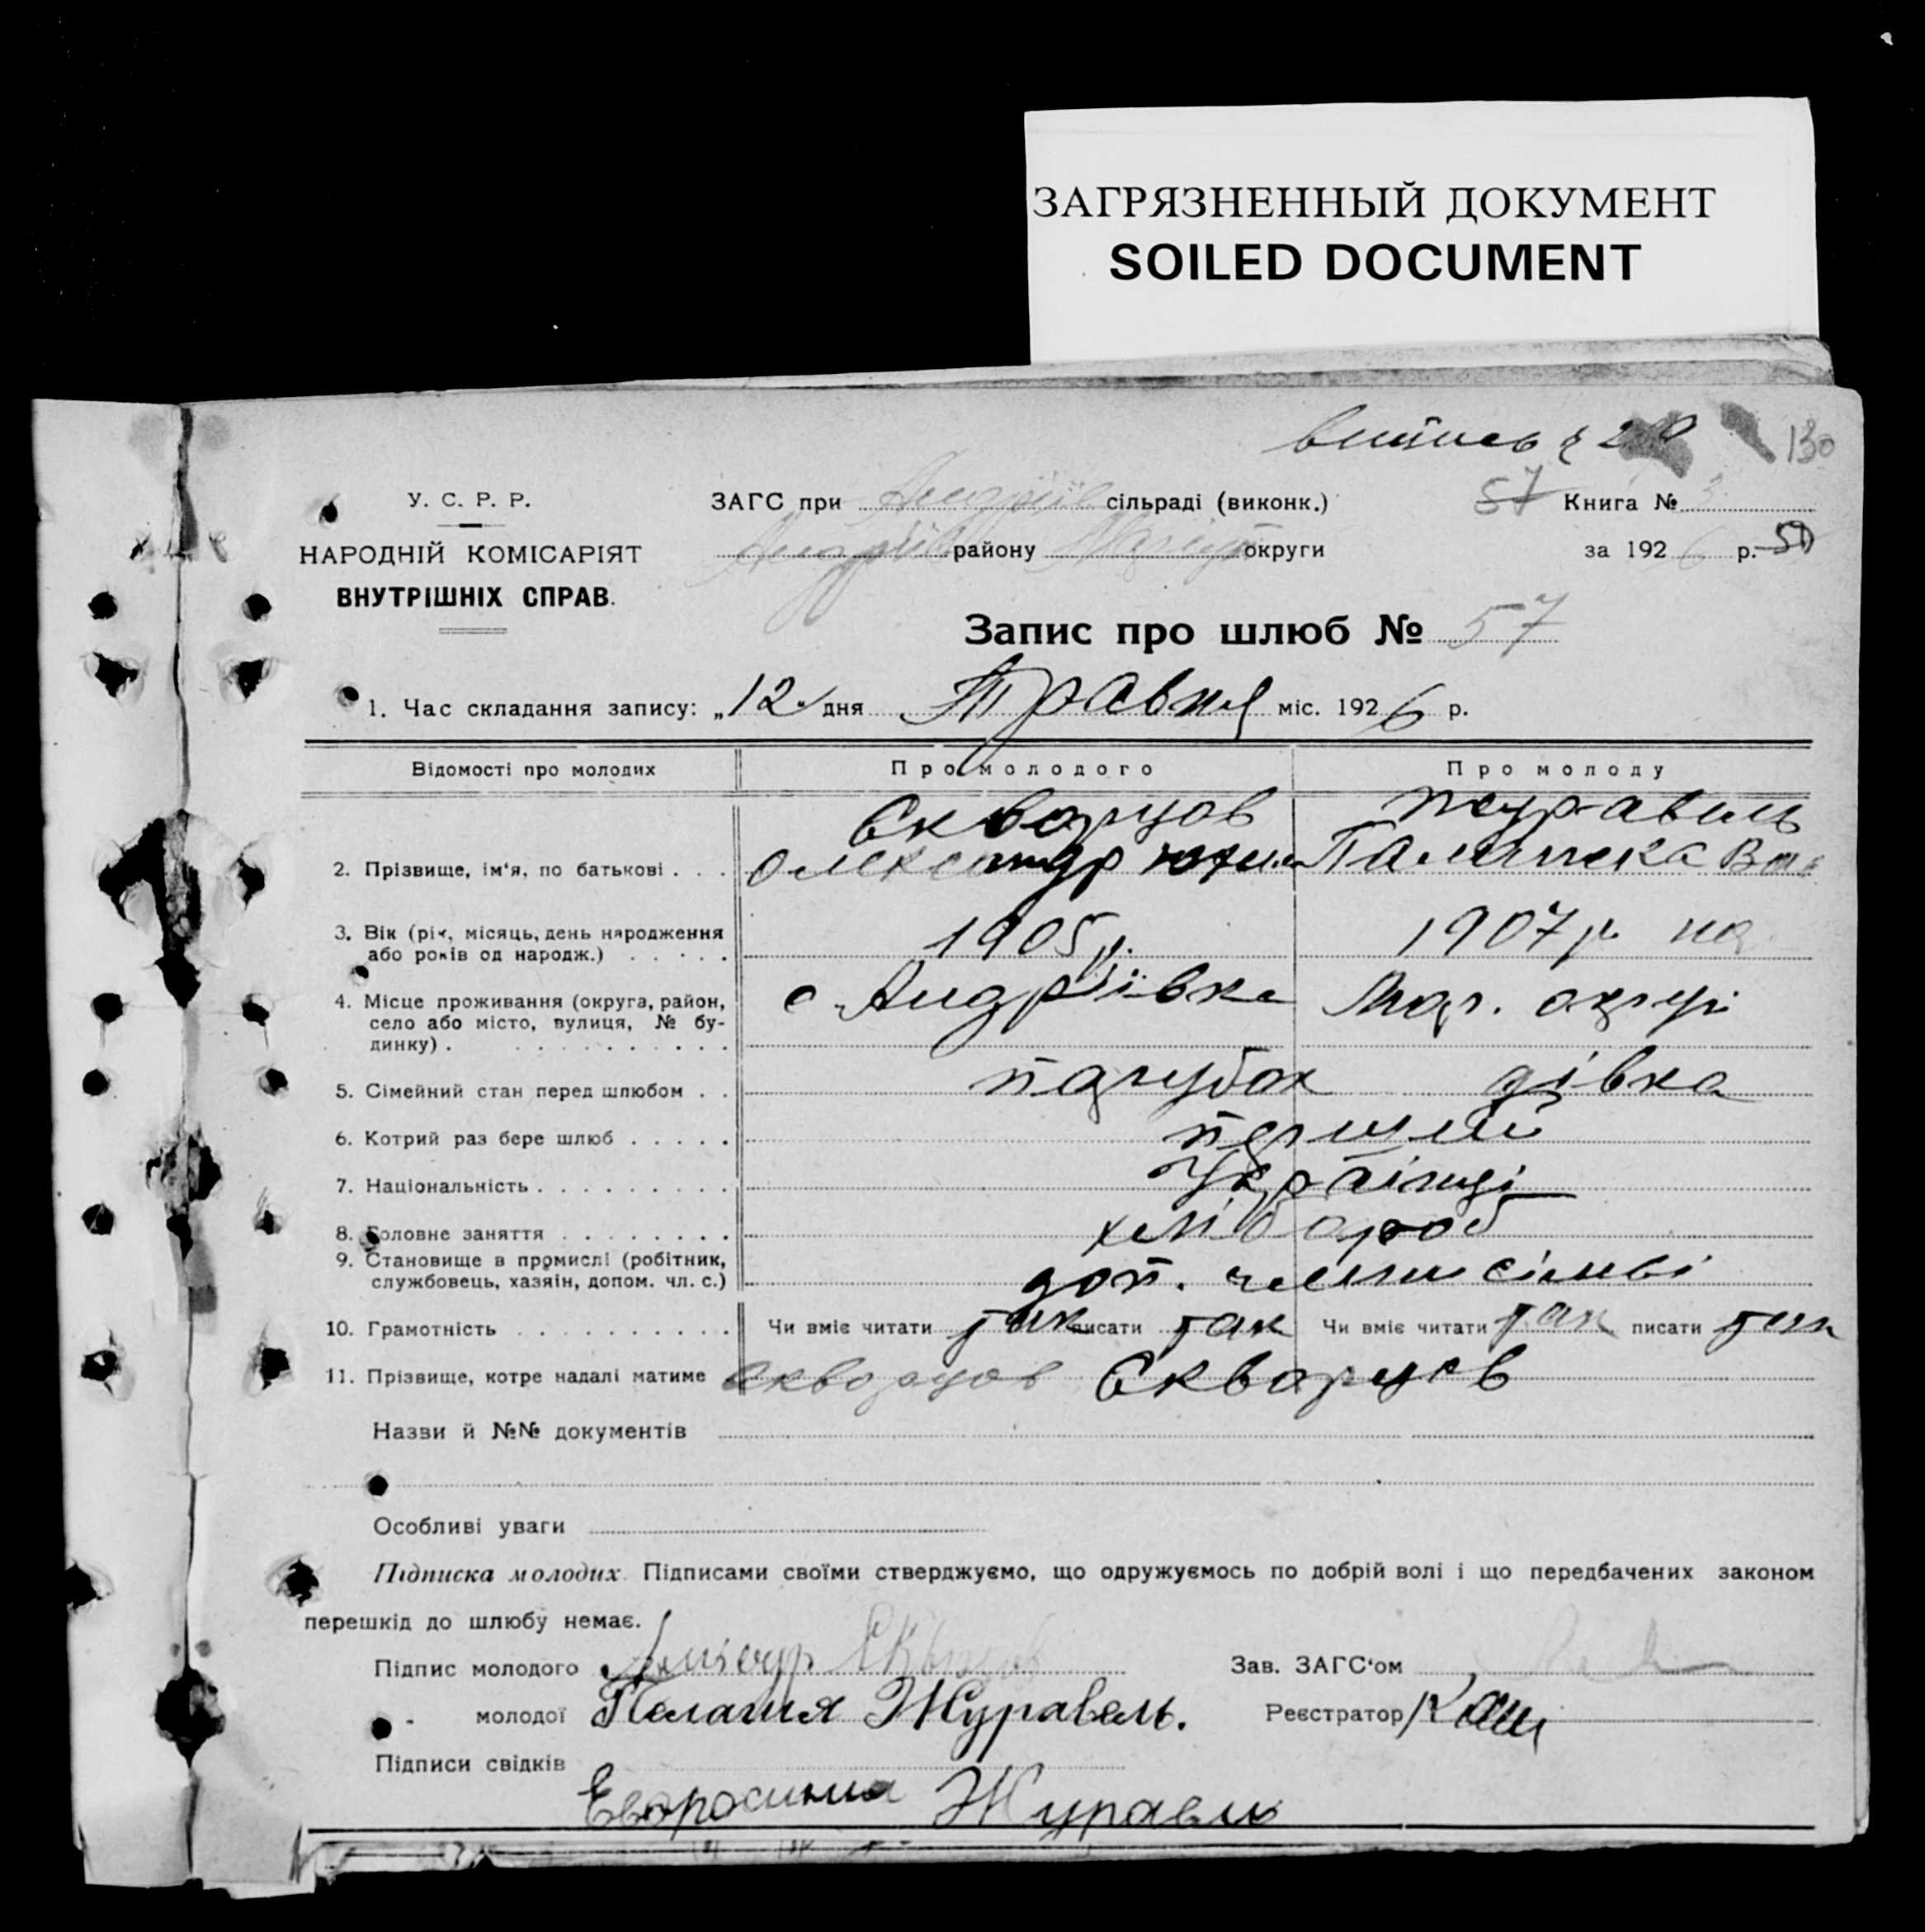 ЗАГРЯЗНЕННЫЙ ДОКУМЕНТ
SOILED DOCUMENT
130
У. С. Р. Р.
НАРОДНІЙ КОМІСАРІЯТ
ВНУТРІШНІХ СПРАВ.
ЗАГС при сільраді (виконк.)
57 Книга № 3
району округи
за 1926 р.
Запис про шлюб № 57
1. Час складання запису: „12 дня Травня міс. 1926 р.
Відомості про молодих Про молодого Про молоду
Скворцов Журавель
2. Прізвище, ім'я, по батькові . . . Олександр
3. Вік (рік, місяць, день народження
або років од народж.) . . . . . 1905 р. 1907 р.
4. Місце проживання (округа, район, с Андріївка Мар. округи
село або місто, вулиця, № бу-
динку) . . . . . . . . . . .
5. Сімейний стан перед шлюбом . . парубок дівка
6. Котрий раз бере шлюб . . . . . перший
7. Національність . . . . . . . . . Українці
8. Головне заняття . . . . . . . . хлібороб
9. Становище в промислі (робітник,
службовець, хазяїн, допом. чл. с.) доп. члени сімьі
10. Грамотність . . . . . . . . . . . Чи вміє читати так писати так Чи вміє читати так писати так
11. Прізвище, котре надалі матиме Скворцов Скварцов
Назви й №№ документів
Особливі уваги
Підписка молодих. Підписами своїми стверджуємо, що одружуємось по добрій волі і що передбачених законом
перешкід до шлюбу немає.
Підпис молодого Зав. ЗАГС'ом
молодої Пелагия Журавель. Реєстратор
Підписи свідків
Евфросиния Журавль